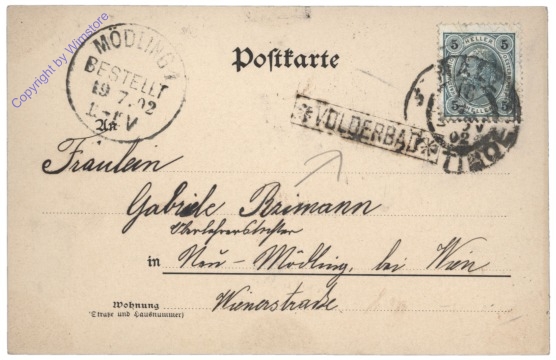 Copyright by Wimstore
MÖDLING
BESTELLT
19.7.02
Postkarte
5 HELLER 5
✻ VOLDERBAD ✻
TIROL
An
Fräulein
Gabriele Brimann
Oberlehrerstochter
in Neu-Mödling, bei Wien
Wienerstraße
Wohnung
(Straße und Hausnummer)